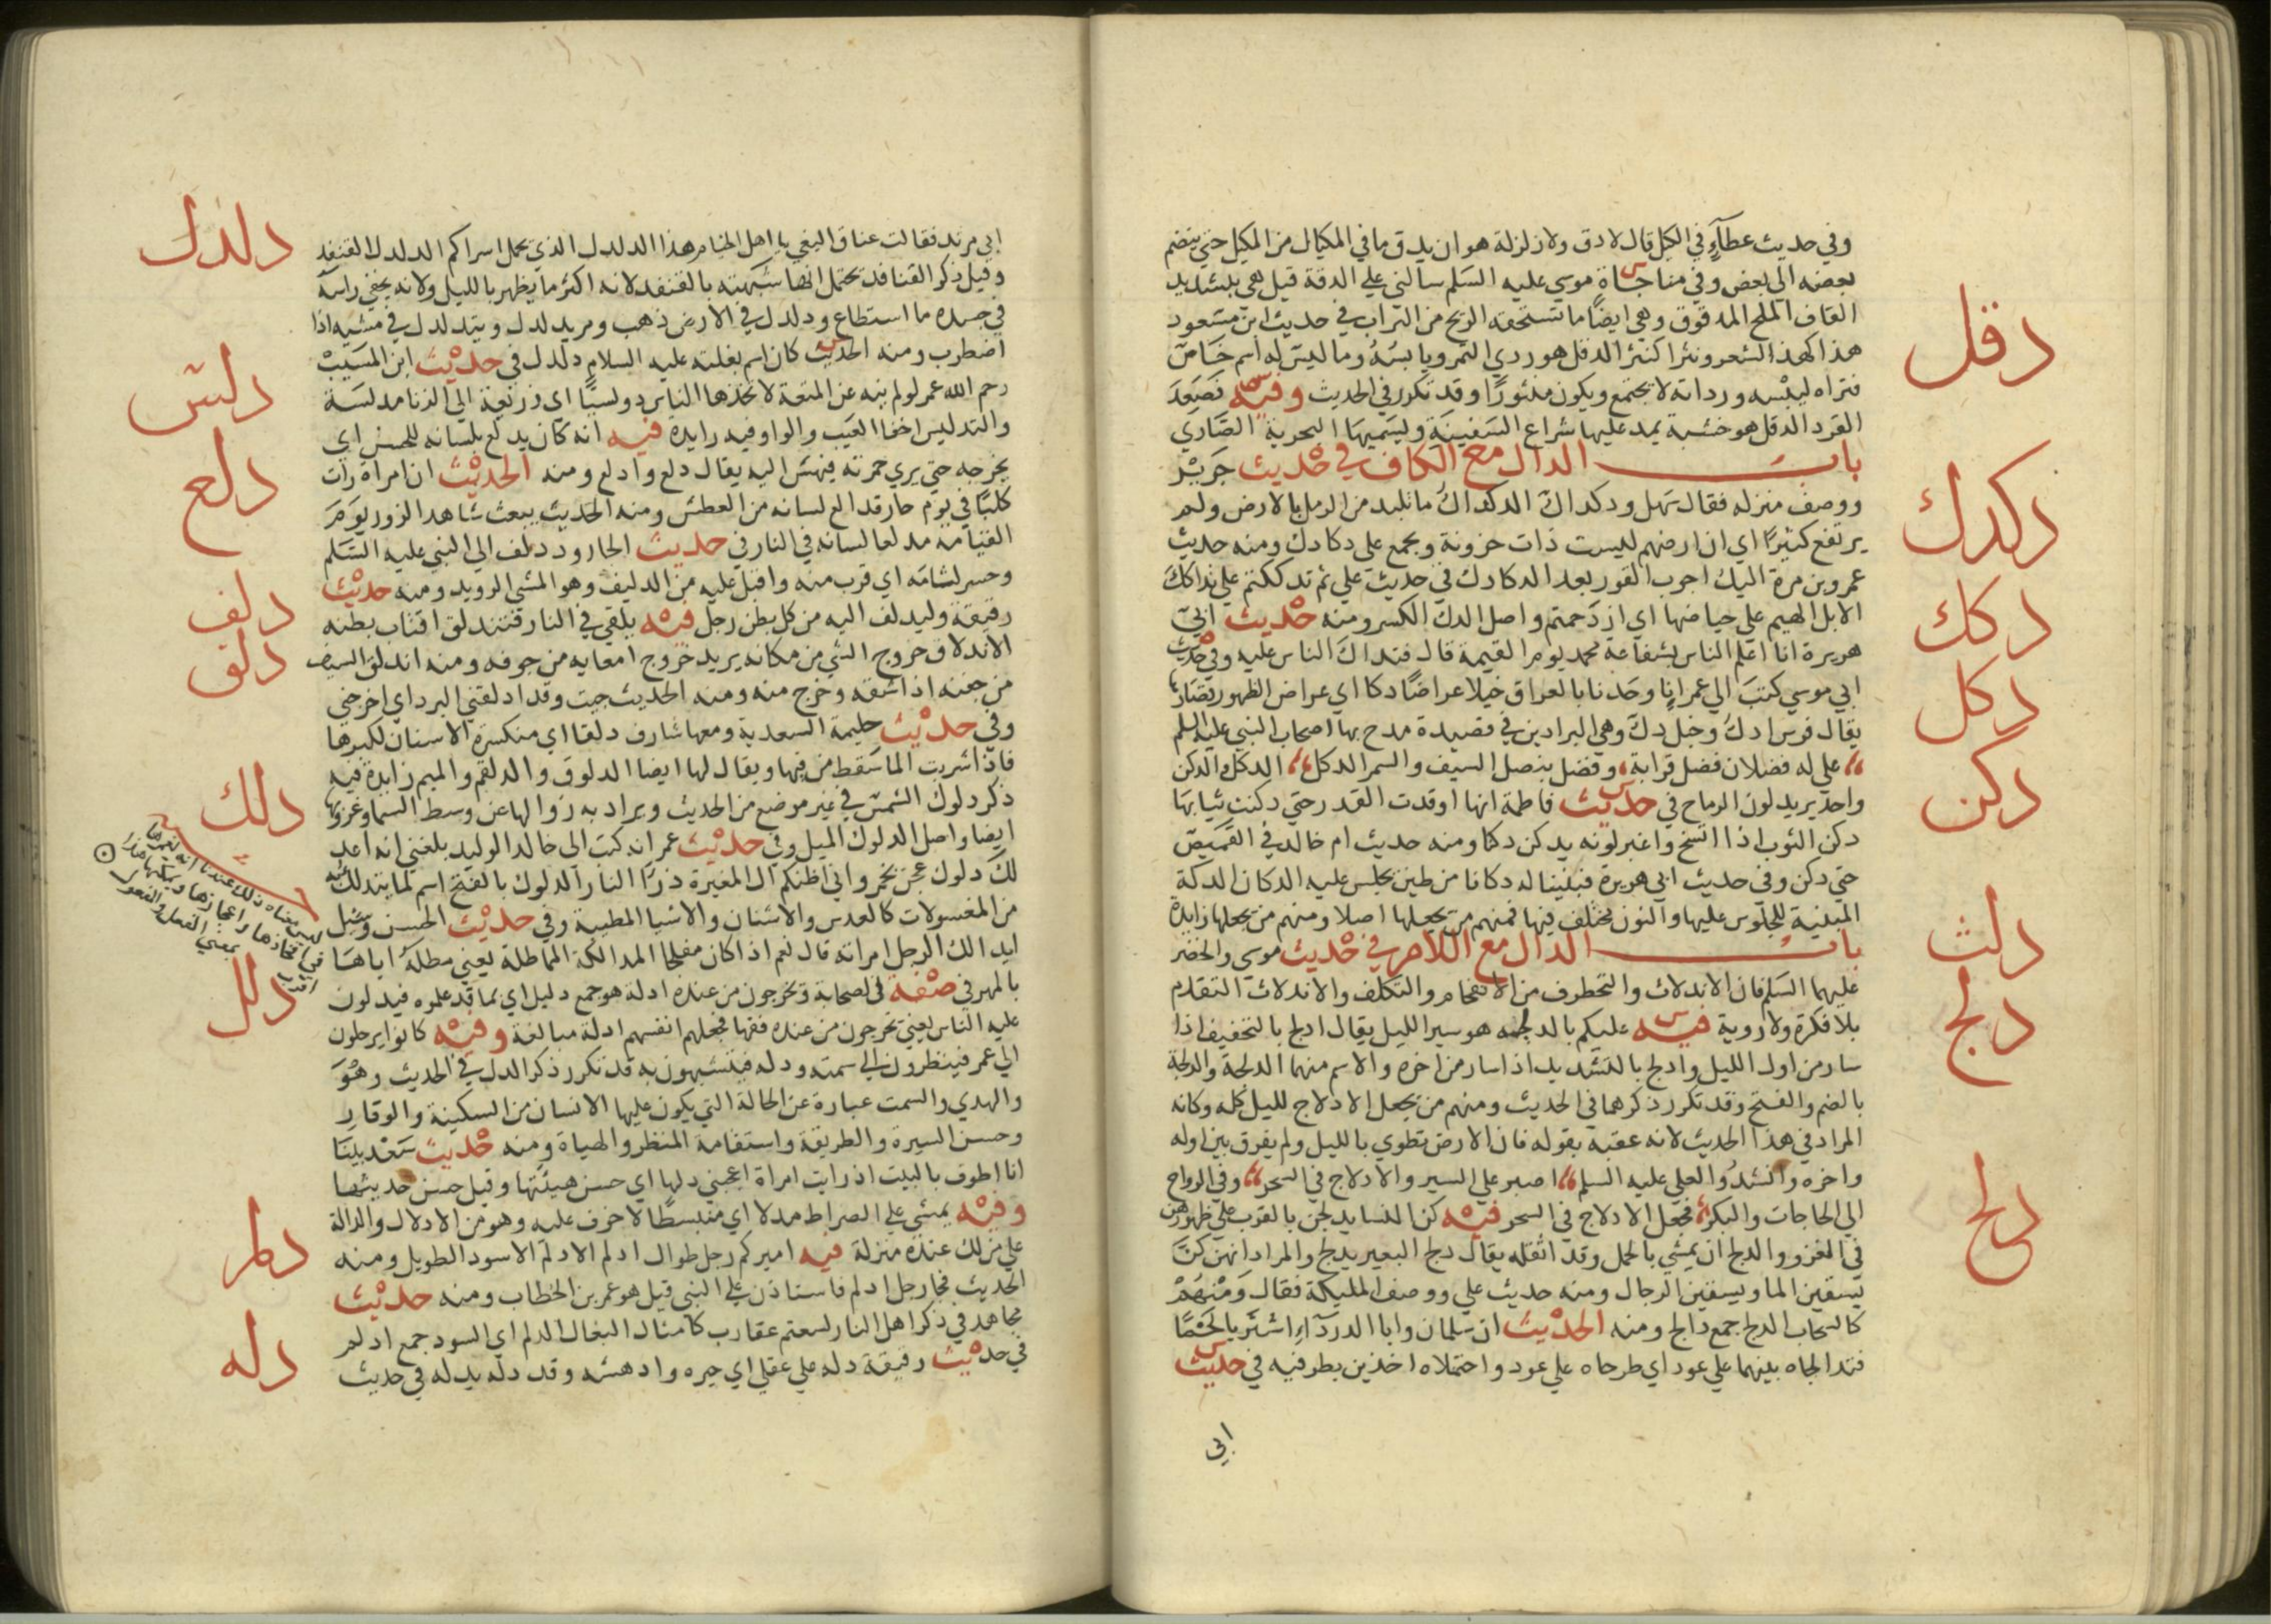 وفي حديث عطآءٍ في الكيل قال لا دق ولا زلزلة هو ان يدق ما في المكيال من المكيل حتي ينضم
بعضه الي بعض وفي مناجاة موسي عليه السلم سالني علي الدقة قيل هي بتشديد
القاف الملح المدقوق وهي ايضًا ما تسحقه الريح من التراب في حديث ابن مسعود
هذا كهذ الشعر ونثرا كنثر الدقل هو ردي التمر ويابسُهُ وما ليس له اسم خاصّ
فتراه ليبسه ورداته لا يجتمع ويكون منثورًا وقد تكرر في الحديث وفيه فصَعِدَ
القرد الدقل هو خشبة يمد عليها شراع السفينة وليسميها البحرية الصّاري
باب الدال مع الكاف في حديث جرير
ووصف منزله فقال سهل ودكداك الدكداك ما تلبد من الرمل بالارض ولم
يرتفع كثيرًا اي ان ارضهم ليست ذات حزونة ويجمع علي دكادك ومنه حديث
عمرو بن مرة اليك اجوب القور بعد الدكادك في حديث علي ثم تدككتم علي تداكك
الابل الهيم علي حياضها اي ازدحمتم واصل الدك الكسر ومنه حديث ابي
هريرة انا اعلم الناس بشفاعة محمد يوم القيمة قال فتداك الناس عليه وفي حديث
ابي موسي كتبَ الي عمر اني وجدنا بالعراق خيلا عراضًا دكا اي عراض الظهور قصارها
يقال فرس ادك وخيل دك وهي البرادين في قصيدة مدح بها اصحاب النبي عليه السلم
علي له فضلان فضل قرابة وفضل بنصل السيف والسمر الدكل الدكل والدكن
واحد يريد لون الرماح في حديث فاطمة انها اوقدت القدر حتي دكنت ثيابها
دكن الثوب اذا اتسخ واغبر لونه يدكن دكنا ومنه حديث ام خالد في القميص
حتي دكن وفي حديث ابي هريرة فبنينا له دكانا من طين يجلس عليه الدكان الدكة
المبنية للجلوس عليها والنون مختلف فيها فمنهم من يجعلها اصلا ومنهم من يجعلها زايدة
باب الدال مع اللام في حديث موسي والخضر
عليهما السلم فان الاندلاث والتخطرف من الانقحام والتكلف والاندلاث التقدم
بلا فكرة ولا روية فيه عليكم بالدلجه هو سير الليل يقال ادلج بالتخفيف اذا
سار من اول الليل وادلج بالتشديد اذا سار من اخره والاسم منهما الدلجة والدلجة
بالضم والفتح وقد تكرر ذكرهما في الحديث ومنهم من يجعل الادلاج لليل كله وكانه
المراد في هذا الحديث لانه عقبه بقوله فان الارض تطوي بالليل ولم يفرق بين اوله
واخره وانشدوا لعلي عليه السلم اصبر علي السير والادلاج في السحر وفي الرواح
الي الحاجات والبكر فجعل الادلاج في السحر فيه كن النسا يدلجن بالقرب علي ظهورهن
في الغزو والدلج ان يمشي بالحمل وقد اثقله يقال دلج البعير يدلج والمراد انهن كنّ
يستقين الما ويسقين الرجال ومنه حديث علي ووصف المليكة فقال وَمْنهُمْ
كالسحاب الدلح جمع دالح ومنه الحديث ان سلمان وابا الدردآءِ اشتريا لحمًا
فتدالحاه بينهما علي عود اي طرحاه علي عود واحتملاه اخذين بطرفيه في حديث
ابي
دقل
دكدك
دكك
دكل
دكن
دلث
دلج
دلح
ابي مرثد فقالت عناق البغي يا اهل الخيام هذا الدلدل الذي يحمل اسراكم الدلدل القنفد
وقيل ذكر القنافد يحتمل انها شبهته بالقنفد لانه اكثر ما يظهر بالليل ولانه يخفي راسه
في جسده ما استطاع ودلدل في الارض ذهب ومر يدلدل ويتدلدل في مشيه اذا
اضطرب ومنه الحديث كان اسم بغلته عليه السلام دلدل في حديث ابن المسيب
رحم الله عمر لو لم ينه عن المتعة لاتخذها الناس دولسيًّا اي ذريعة الي الزنا مدلسة
والتدليس اخفا العيب والواو فيه زايدة فيه انه كان يدلع بلسانه للحسن اي
يخرجه حتي يري حمرته فيهش اليه يقال دلع وادلع ومنه الحديث ان امراة رات
كلبًا في يوم حار قد ادلع لسانه من العطش ومنه الحديث يبعث شاهد الزور يوم
القيامة مدلعا لسانه في النار في حديث الجارود دلف الي النبي عليه السلم
وحسر لثامه اي قرب منه واقبل عليه من الدليف وهو المشي الرويد ومنه حديث
رقيقة وليدلف اليه من كل بطن رجل فيه يلقي في النار فتندلق اقتاب بطنه
الاندلاق خروج الشي من مكانه يريد خروج امعايه من جوفه ومنه اندلق السيف
من جفنه اذا شقه وخرج منه ومنه الحديث جيت وقد ادلقني البرد اي اخرجني
وفي حديث حليمة السعدية ومعها شارف دلقا اي منكسرة الاسنان لكبرها
فاذا شربت الما سقط من فيها ويقال لها ايضا الدلوق والدلقم والميم زايدة فيه
ذكر دلوك الشمس في غير موضع من الحديث ويراد به زوالها عن وسط السما وغروبها
ايضا واصل الدلوك الميل وفي حديث عمر انه كتب الي خالد الوليد بلغني انه اعد
لك دلوك عجن بخمر واني اظنكم ال المغيرة ذرا النار الدلوك بالفتح اسم لما يتدلك به
من المغسولات كالعدس والاشنان والاشيا المطيبة وفي حديث الحسن وسيل
ايدالك الرجل امراته قال نعم اذا كان مفلجا المدالكة المماطلة يعني مطله اياها
بالمهر في صفة الصحابة ويخرجون من عنده ادلة هو جمع دليل اي بما قد علموه فيدلون
عليه الناس يعني يخرجون من عنده فقها فجعلهم انفسهم ادلة مبالغة وفيه كانوا يرحلون
الي عمر فينظرون الي سمته ودله فيتشبهون به قد تكرر ذكر الدل في الحديث وهُوَ
والهدي والسمت عبارة عن الحالة التي يكون عليها الانسان من السكينة والوقار
وحسن السيرة والطريقة واستقامة المنظر والهياة ومنه حديث سَعْد بينا
انا اطوف بالبيت اذ رايت امراة اعجبني دلها اي حسن هيئتها وقيل حسن حديثها
وفيه يمشي علي الصراط مدلا اي منبسطًا لا خوف عليه وهو من الادلال والدالة
علي من لك عنده منزلة فيه اميركم رجل طوال ادلم الادلم الاسود الطويل ومنه
الحديث فجا رجل ادلم فاستاذن علي النبي قيل هو عمر بن الخطاب ومنه حديث
مجاهد في ذكر اهل النار لسعتهم عقارب كامثال البغال الدلم اي السود جمع ادلم
في حديث رقيقة دله علي عقلي اي حيره وادهشه وقد دله يدله في حديث
دلدل
دلس
دلع
دلف
دلق
دلك
دلل
دلم
دله